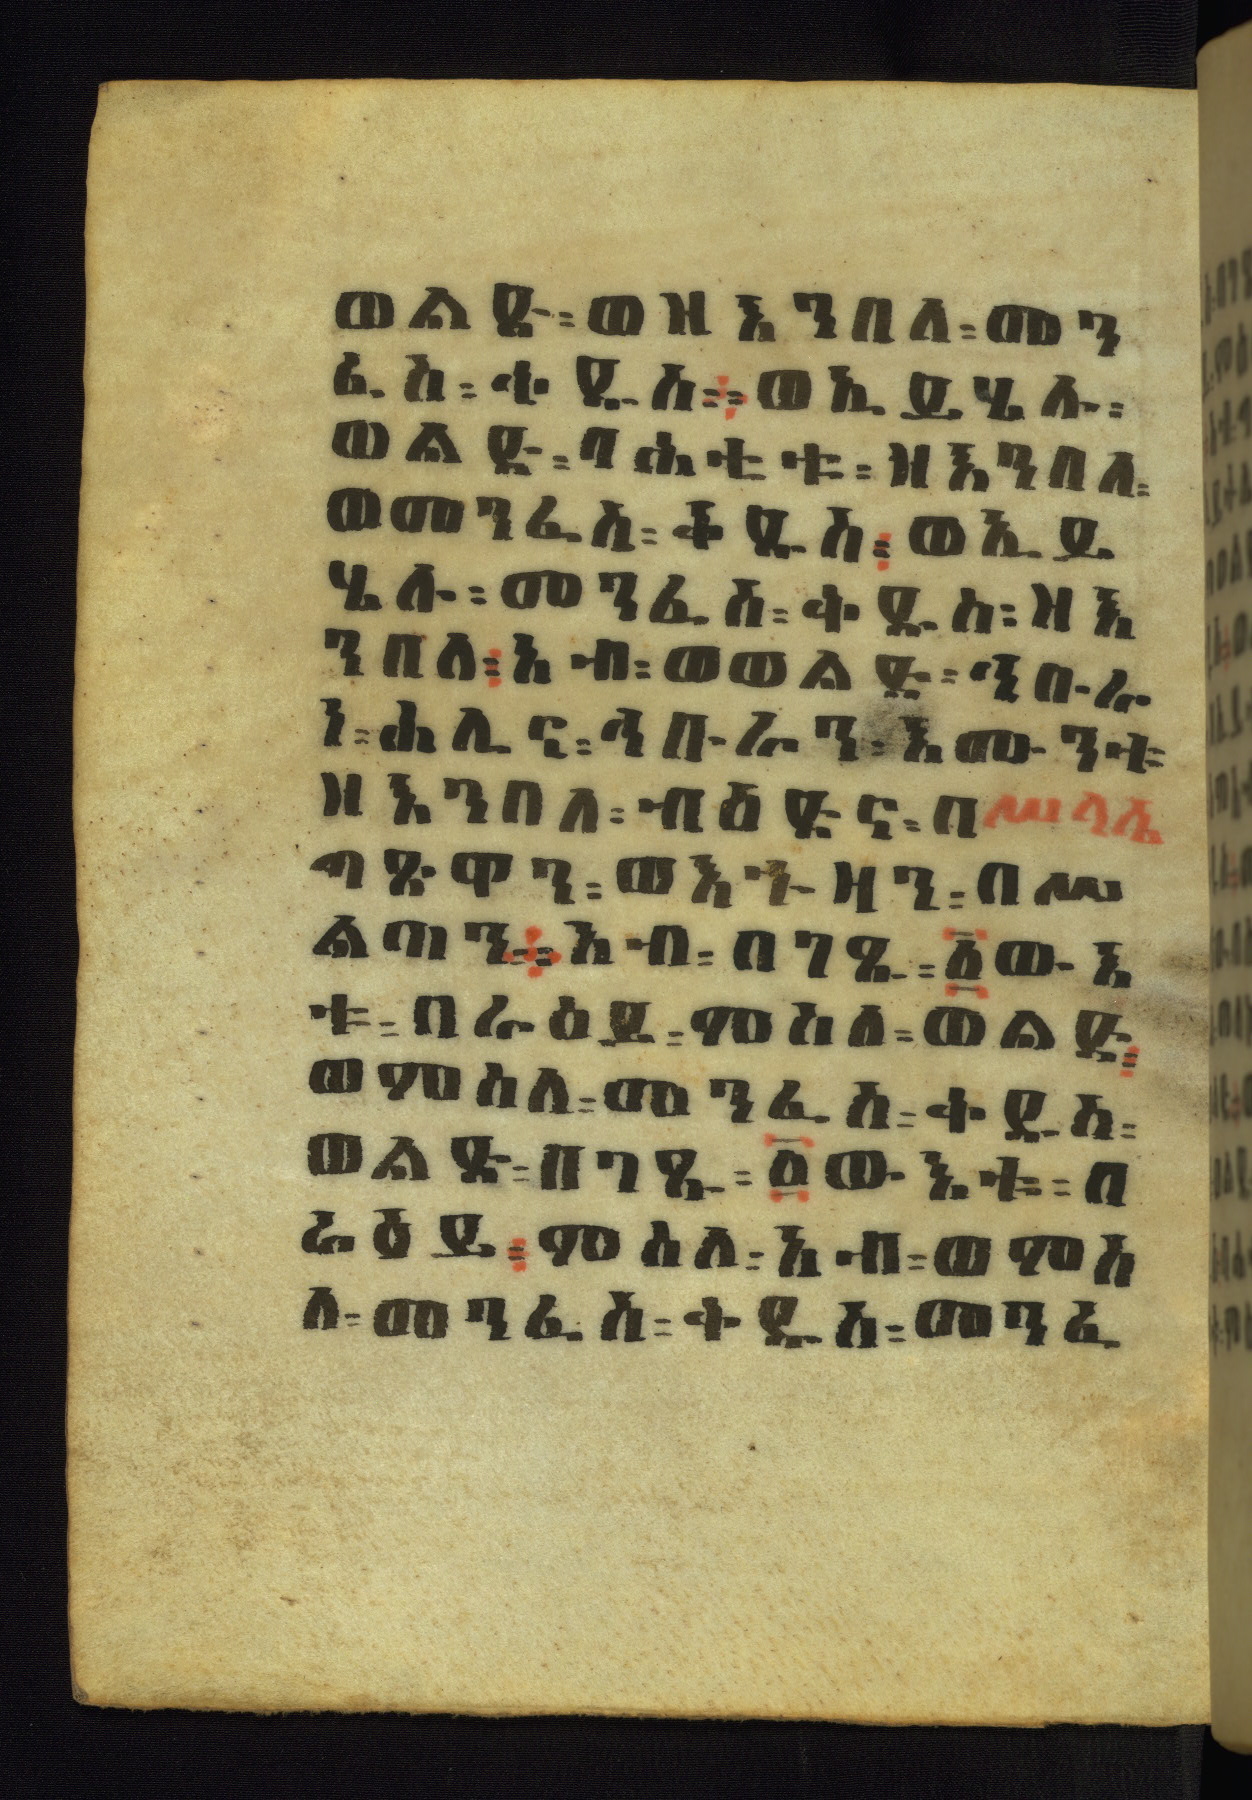 ወልድ፡ወዘእንበለ፡መን
ፈስ፡ቅዱስ፡፡ወኢይሄሉ፡
ወልድ፡ባሕቲቱ፡ዘእንበለ፡
ወመንፈስ፡ቅዱስ፡ወኢይ
ሄሉ፡መንፈስ፡ቅዱስ፡ዘእ
ንበለ፡አብ፡ወወልድ፡ኅቡረ
ነ፡ሐሊና፡ኅቡራን፡እሙንቱ፡
ዘእንበለ፡ብዕድና፡በሠለሴ
ጣጼዋን፡ወእኁዛን፡በሠ
ልጣን፡፡አብ፡በገጹ፡፩ውእ
ቱ፡በራዕይ፡ምስለ፡ወልድ፡
ወምስለ፡መንፈስ፡ቅዱስ፡
ወልድ፡በገጹ፡፩ውእቱ፡በ
ራዕይ፡ምስለ፡አብ፡ወምስ
ለ፡መንፈስ፡ቅዱስ፡መንፈ